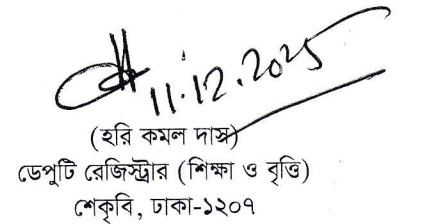 11.12.2025
(হরি কমল দাস)
ডেপুটি রেজিস্ট্রার (শিক্ষা ও বৃত্তি)
শেকৃবি, ঢাকা-১২০৭